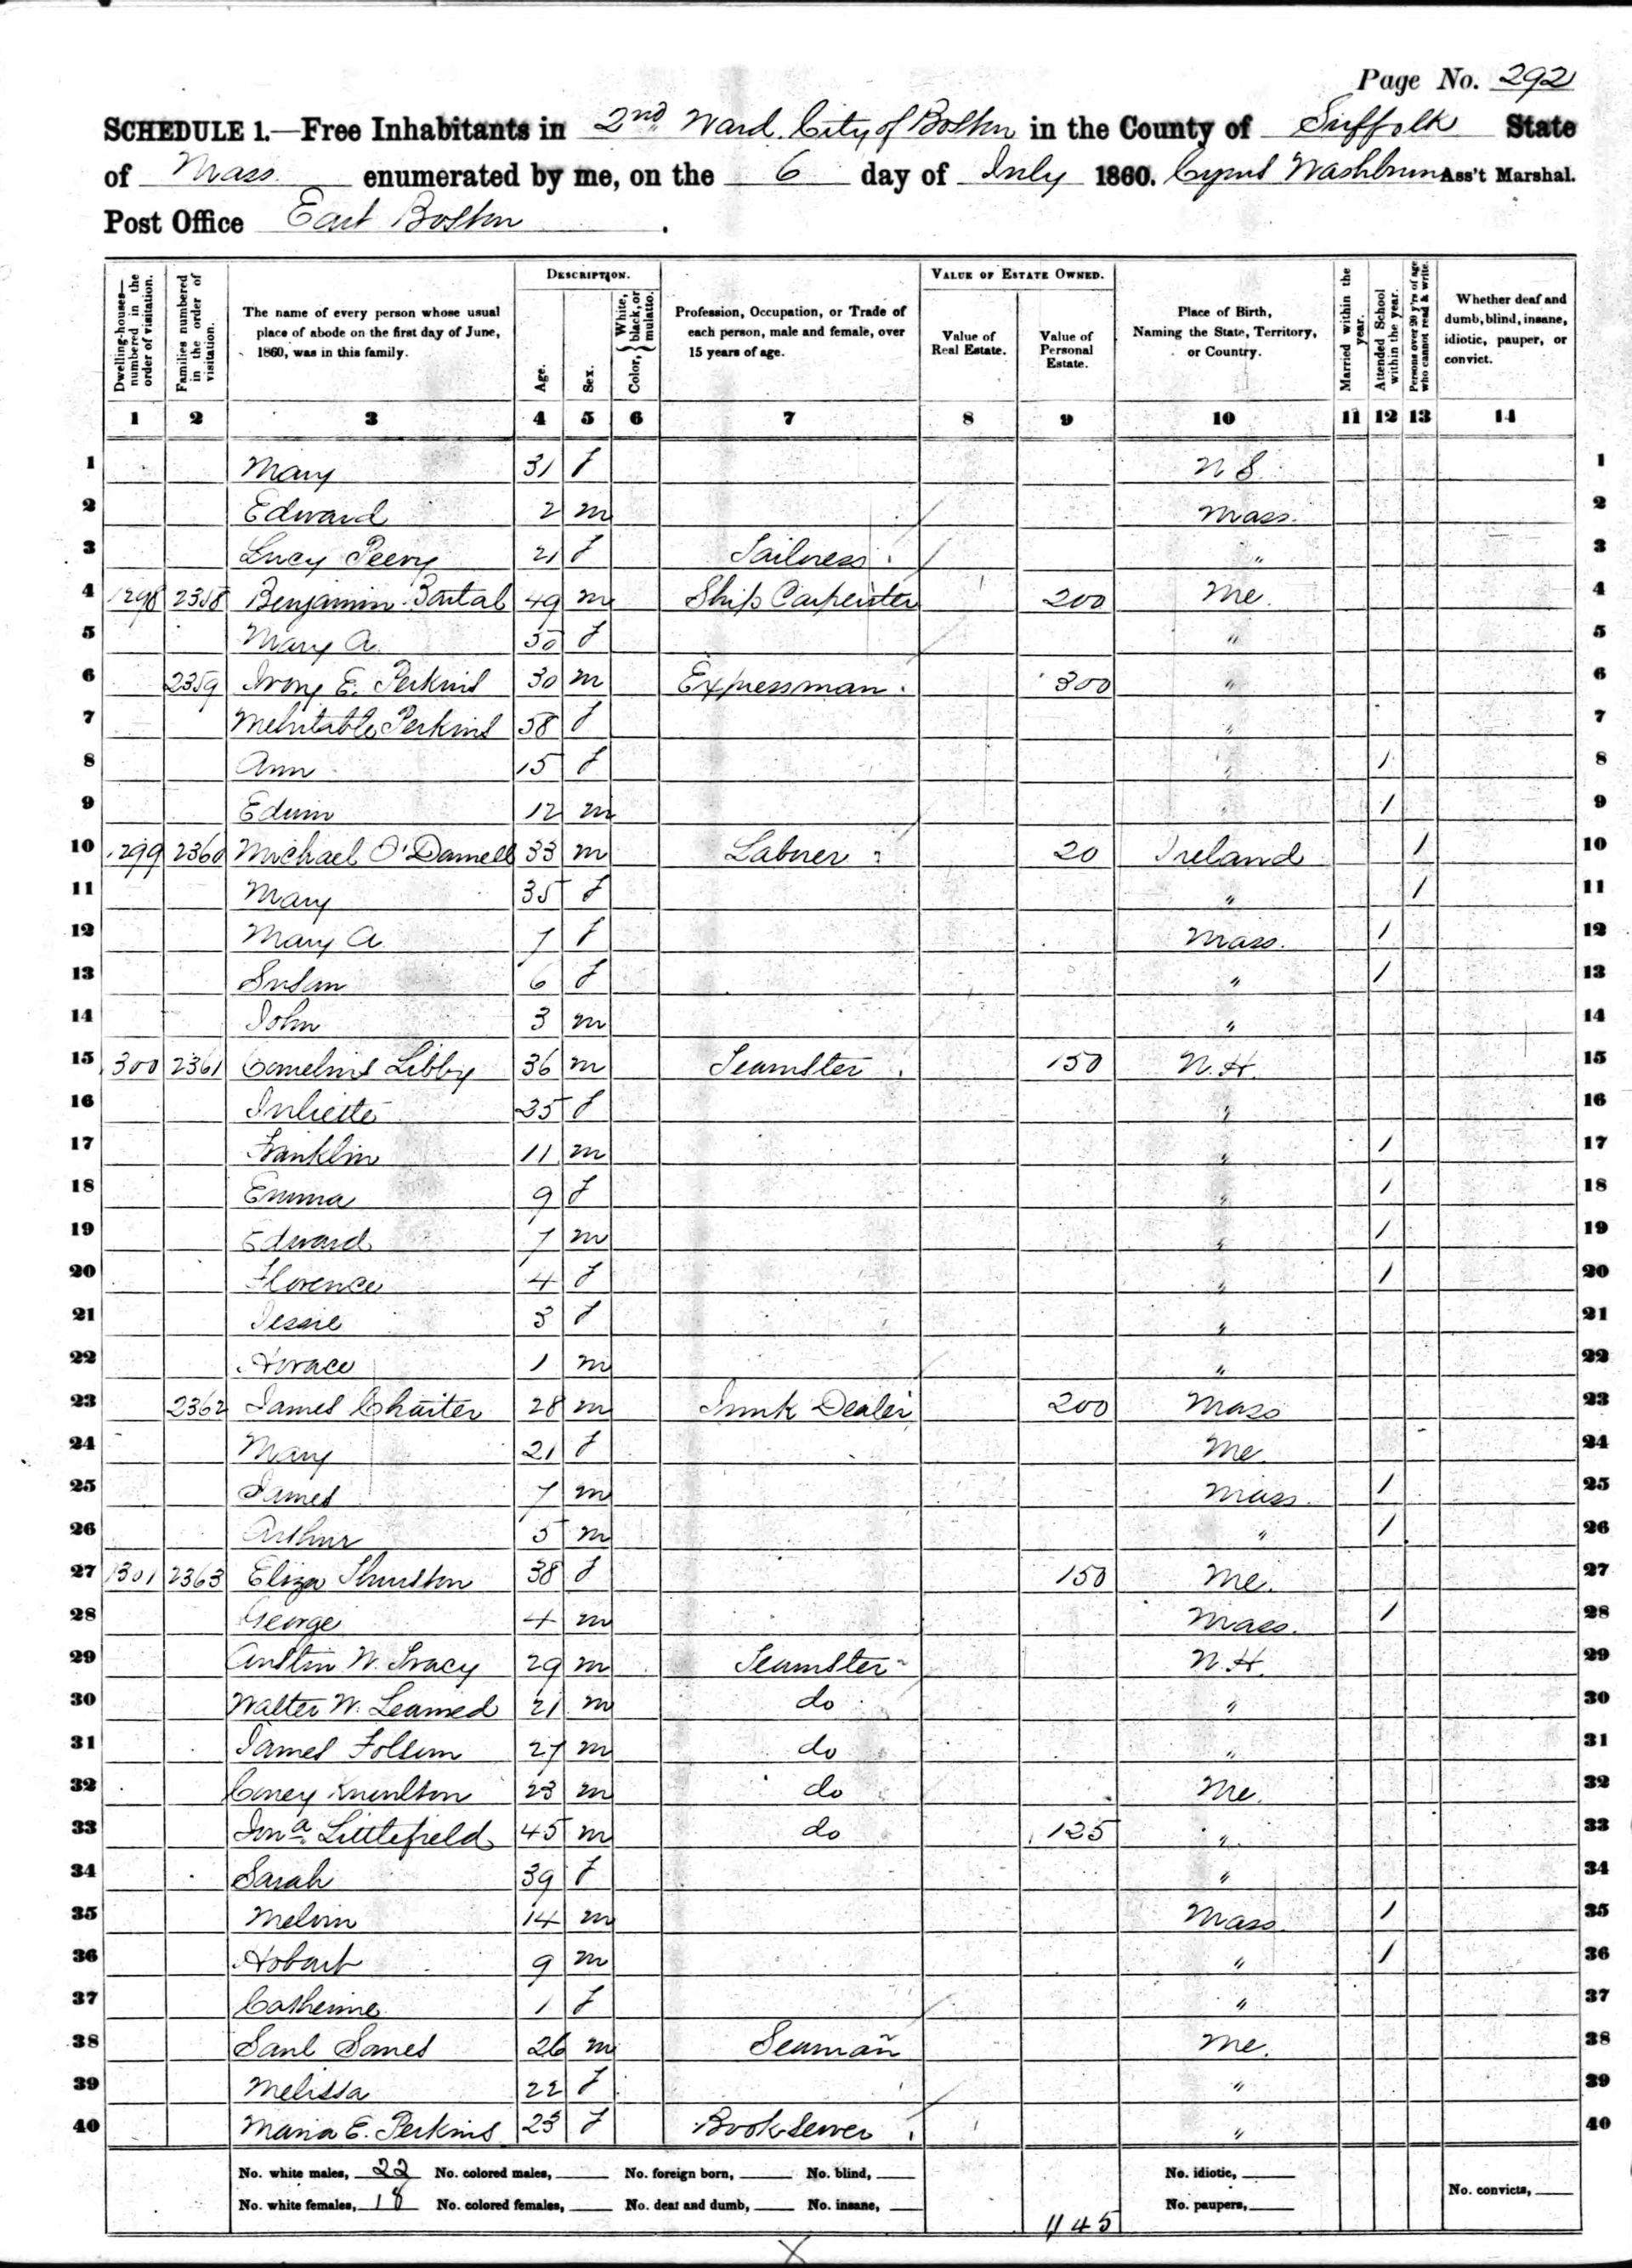 Page No. 292
SCHEDULE 1.—Free Inhabitants in 2nd Ward, City of Boston in the County of Suffolk State
of Mass. enumerated by me, on the 6 day of July 1860. Cyrus Washburn Ass't Marshal.
Post Office East Boston.
Dwelling-houses—numbered in the order of visitation. Families numbered in the order of visitation. The name of every person whose usual place of abode on the first day of June, 1860, was in this family. DESCRIPTION. Age. Sex. Color, White, black, or mulatto. Profession, Occupation, or Trade of each person, male and female, over 15 years of age. VALUE OF ESTATE OWNED. Value of Real Estate. Value of Personal Estate. Place of Birth, Naming the State, Territory, or Country. Married within the year. Attended School within the year. Persons over 20 y'rs of age who cannot read & write. Whether deaf and dumb, blind, insane, idiotic, pauper, or convict.
1 2 3 4 5 6 7 8 9 10 11 12 13 14
1 Mary 31 f N S. 1
2 Edward 2 m Mass. 2
3 Lucy 21 f Tailoress " 3
4 1298 2358 Benjamin 49 m Ship Carpenter 200 Me. 4
5 Mary A. 50 f " 5
6 2359 Ivory E. Perkins 30 m Expressman 300 " 6
7 Mehitable Perkins 58 f " 7
8 Ann 15 f " 1 8
9 Edwin 12 m " 1 9
10 1299 2360 Michael O'Donnell 33 m Laborer 20 Ireland 1 10
11 Mary 35 f " 1 11
12 Mary A. 7 f Mass. 1 12
13 Susan 6 f " 1 13
14 John 3 m " 14
15 1300 2361 Cornelius Libby 36 m Teamster 150 N.H. 15
16 Juliette 35 f " 16
17 Franklin 11 m " 1 17
18 Emma 9 f " 1 18
19 Edward 7 m " 1 19
20 Florence 4 f " 1 20
21 Jessie 3 f " 21
22 Horace 1 m " 22
23 2362 James Charter 28 m Junk Dealer 200 Mass 23
24 Mary 21 f Me. 24
25 James 7 m Mass. 1 25
26 Arthur 5 m " 1 26
27 1301 2363 Eliza Thurston 38 f 150 Me. 27
28 George 4 m Mass. 1 28
29 Austin W. Tracy 29 m Teamster N.H. 29
30 Walter W. Learned 21 m do " 30
31 James Folsum 27 m do " 31
32 Knowlton 23 m do Me. 32
33 Jona. Littlefield 45 m do 125 " 33
34 Sarah 39 f " 34
35 Melvin 14 m Mass. 1 35
36 Hobart 9 m " 1 36
37 Catherine 1 f " 37
38 26 m Seaman Me. 38
39 Melissa 22 f " 39
40 Maria E. Perkins 23 f Book Sewer " 40
No. white males, 22 No. colored males, No. foreign born, No. blind, No. idiotic,
No. white females, 18 No. colored females, No. deaf and dumb, No. insane, No. paupers, No. convicts,
1145
X